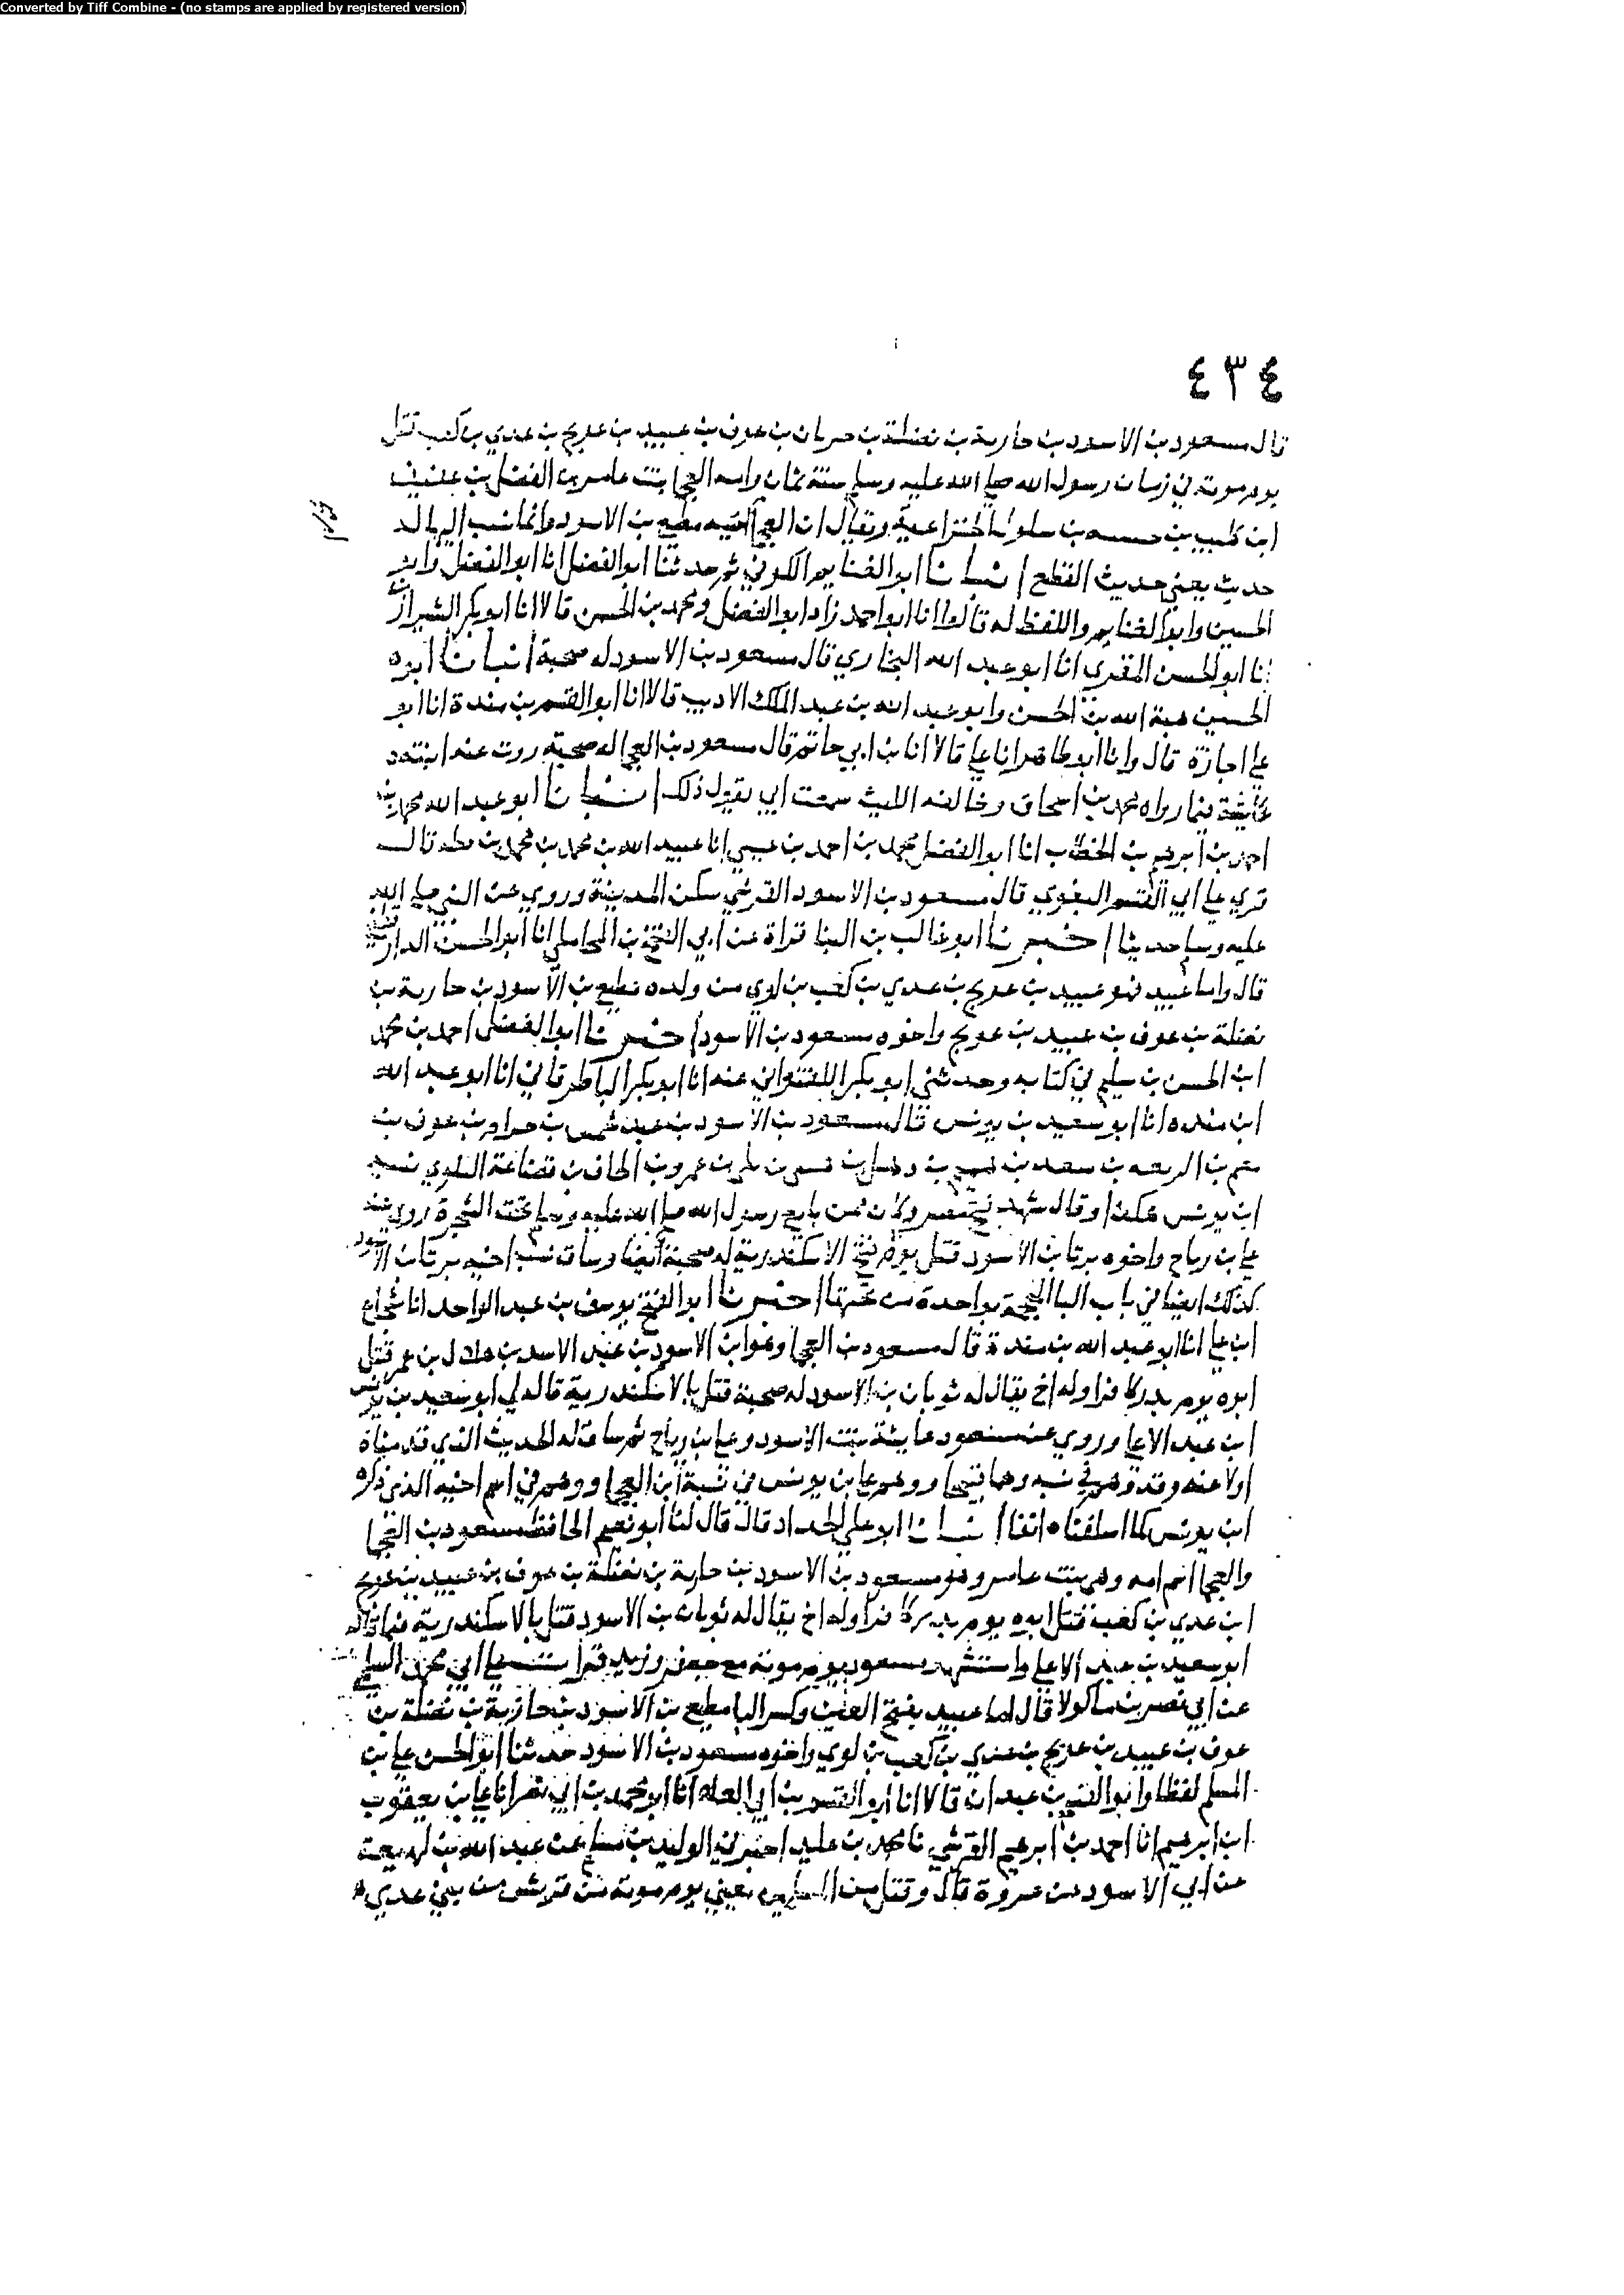 Converted by Tiff Combine - (no stamps are applied by registered version)
٤٣٤
قال مسعود بن الاسود بن حارثة بن نضلة بن حرثان بن عوف بن عبيد بن عويج بن عدي بن كعب قتل
يوم موتة في زمان رسول الله صلى الله عليه وسلم سنة ثمان وامه العجما بنت عامر بن الفضل بن عفيف
ابن كليب بن بن سلول الخزاعية ويقال ان العجما مطيع بن الاسود وانما نسب اليها له
حديث يعني حديث القطع انبانا ابو الغنايم الكوفي ثم حدثنا ابو الفضل انا ابو الفضل وابو
الحسين وابو الغنايم واللفظ له قالوا انا ابو احمد زاد ابو الفضل ومحمد بن الحسن قالا انا ابو بكر الشيرازي
انا ابو الحسن المقري انا ابو عبد الله البخاري قال مسعود بن الاسود له صحبة انبانا ابوه
الحسين هبة الله بن الحسن وابو عبد الله بن عبد الملك الاديب قالا انا ابو القسم بن مندة انا ابو
علي اجازة قال وانا ابو طاهر انا علي قالا انا بن ابي حاتم قال مسعود بن العجما له صحبة روت عنه ابنته
عايشة فيما رواه محمد بن اسحاق وخالفه الليث سمعت ابي يقول ذلك انبانا ابو عبد الله محمد بن
احمد بن ابرهيم بن الخطاب انا ابو الفضل محمد بن احمد بن عيسى انا عبيد الله بن محمد بن محمد بن بطه قال
قري علي ابي القسم البغوي قال مسعود بن الاسود القرشي سكن المدينة وروي عن النبي صلى الله
عليه وسلم حديثا اخبرنا ابو غالب بن البنا قراة عن ابي الفتح بن المحاملي انا ابو الحسن الدارقطني
قال واما عبيد فهو عبيد بن عويج بن عدي بن كعب بن لوي من ولده مطيع بن الاسود بن حارثة بن
نضلة بن عوف بن عبيد بن عويج واخوه مسعود بن الاسود اخبرنا ابو الفضل احمد بن محمد
ابن الحسن بن سليم في كتابه وحدثني ابو بكر اللفتواني عنه انا ابو بكر الباطرقاني انا ابو عبد الله
ابن منده انا ابو سعيد بن يونس قال مسعود بن الاسود بن عبد شمس بن حرام بن عوف بن
بن الربعه بن سعد بن بن بن بن بلي بن عمرو بن الحاف بن قضاعة البلوي نسبه
ابن يونس هكذا وقال شهد فتح مصر وكان ممن بايع رسول الله صلى الله عليه وسلم تحت الشجرة روي عنه
علي بن رباح واخوه برتا بن الاسود قتل يوم فتح الاسكندرية له صحبة ايضا وساق نسب اخيه برتا بن الاسود
كذلك ايضا في باب البا المعجمة بواحدة من تحتها اخبرنا ابو الفتح يوسف بن عبد الواحد انا شجاع
ابن علي انا ابو عبد الله بن مندة قال مسعود بن العجما وهو ابن الاسود بن عبد الاسد بن هلال بن عمر قتل
ابوه يوم بدر كافرا وله اخ يقال له ثوبان بن الاسود له صحبة قتل بالاسكندرية قاله لي ابو سعيد بن يونس
ابن عبد الاعلى وروي عن مسعود عايشة بنت الاسود وعلي بن رباح ثم ساق له الحديث الذي قدمناه
اولا عنه وقد وهم في نسبه ووهم علي بن يونس في نسبة ابن العجما ووهم في اسم اخيه الذي ذكره
ابن يونس كما اسلفناه انفا انبانا ابو علي الحداد قال قال لنا ابو نعيم الحافظ مسعود بن العجما
والعجما اسم امه وهي بنت عامر وهو مسعود بن الاسود بن حارثة بن نضلة بن عوف بن عبيد بن عويج
ابن عدي بن كعب قتل ابوه يوم بدر كافرا وله اخ يقال له ثوبان بن الاسود قتل بالاسكندرية فيما قاله
ابو سعيد بن عبد الاعلى واستشهد مسعود يوم موتة مع جعفر وزيد قرات علي ابي محمد السلمي
عن ابي نصر بن ماكولا قال اما عبيد بفتح العين وكسر البا مطيع بن الاسود بن حارثة بن نضلة بن
عوف بن عبيد بن عويج بن عدي بن كعب بن لوي واخوه مسعود بن الاسود حدثنا ابو الحسن علي بن
المسلم لفظا وابو القسم بن عبدان قالا انا ابو القسم بن ابي العلا انا ابو محمد بن ابي نصر انا علي بن يعقوب
ابن ابرهيم انا احمد بن ابرهيم القرشي نا محمد بن عايد اخبرني الوليد بن مسلم عن عبد الله بن لهيعة
عن ابي الاسود عن عروة قال وقتل من المسلمين يعني يوم موتة من قريش من بني عدي